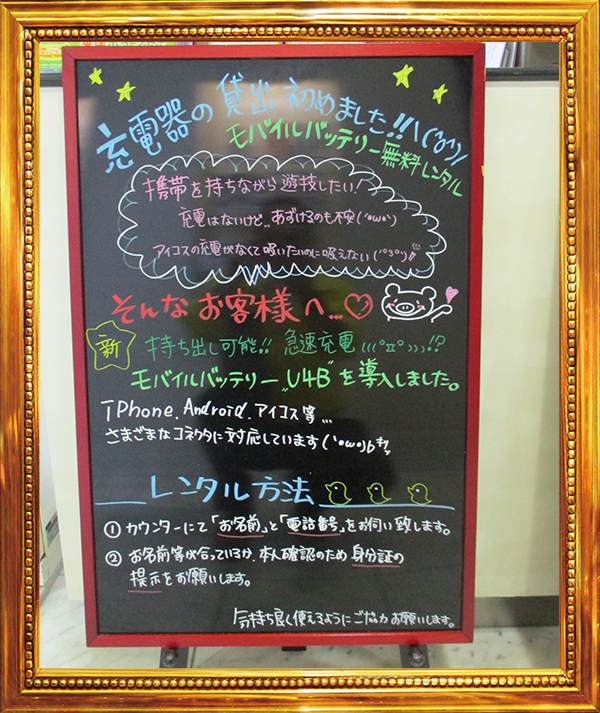 充電器の貸出、初めました!!＼(°ő°)/
モバイルバッテリー無料レンタル
携帯を持ちながら遊技したい!
充電はないけど、、あずけるのも不安(´°ω°`)
アイコスの充電がなくて吸いたいのに吸えない(´°3°`)!!
そんなお客様へ…♡
新
持ち出し可能!! 急速充電(((°ㅍ°)))!?
モバイルバッテリー"U4B"を導入しました。
iPhone、Android、アイコス等…
さまざまなコネクタに対応しています(`°ω°)bｷﾘｯ
レンタル方法
① カウンターにて「お名前」と「電話番号」をお伺い致します。
② お名前等が合っているか、本人確認のため身分証の
提示をお願いします。
気持ち良く使えるようにご協力お願いします。